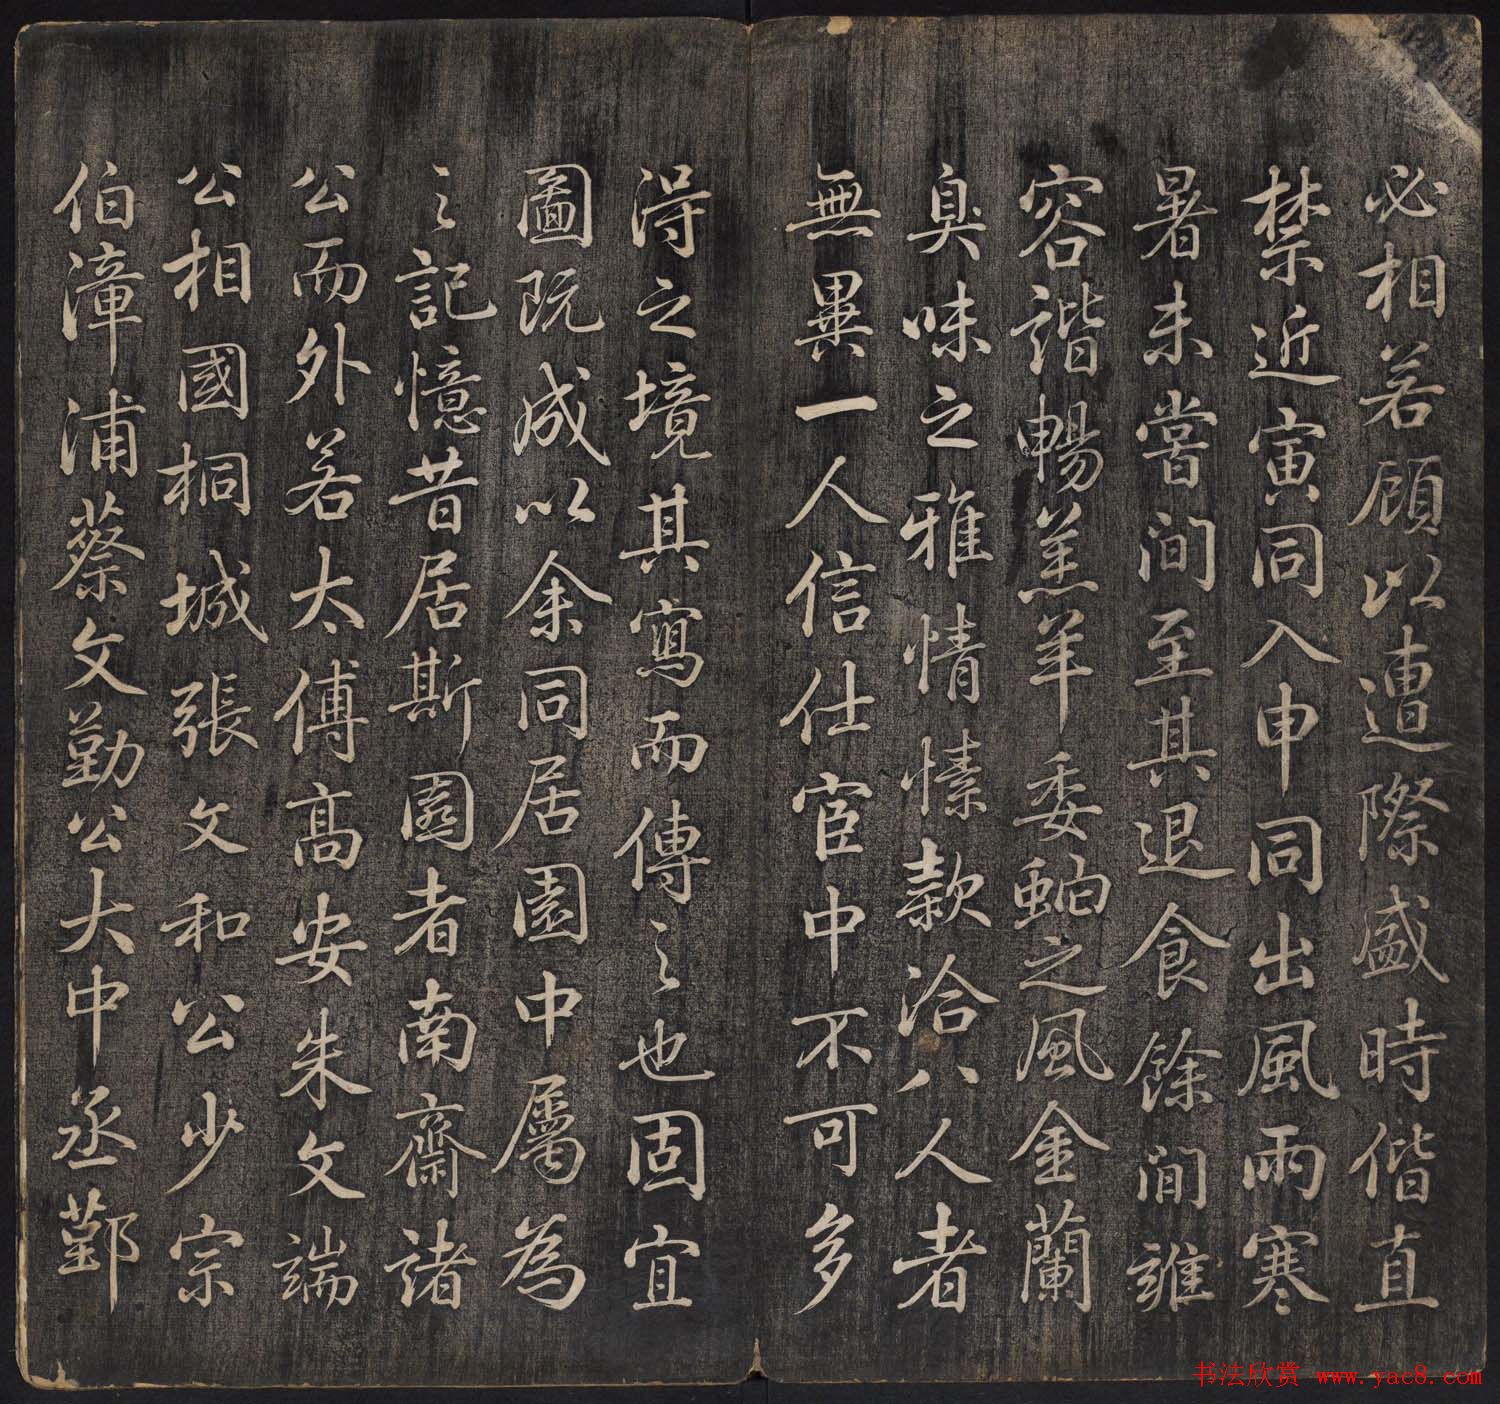 必相若顧以遭際盛時偕直
禁近寅同入申同出風雨寒
暑未嘗間至其退食餘間雝
容諧暢羔羊委蛇之風金蘭
臭味之雅情愫款洽八人者
無異一人信仕宦中不可多
得之境其寫而傳之也固宜
圖既成以余同居園中屬為
之記憶昔居斯園者南齋諸
公而外若太傅高安朱文端
公相國桐城張文和公少宗
伯漳浦蔡文勤公大中丞鄞
书法欣赏 www.yac8.com